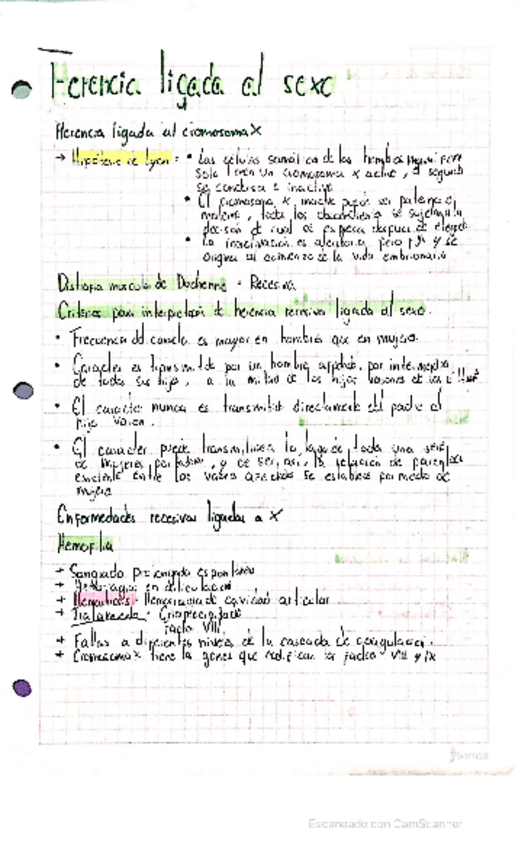 Herencia ligada al sexo
Herencia ligada al cromosoma X
→ Hipótesis de Lyon = • Las células somáticas de las hembras
solo tienen un cromosoma X activo, el segundo
se condensa e inactiva
• El cromosoma X inactivo puede ser paterno o
materno, todas las
decisión de cual se después de
• La inactivación es aleatoria pero y se
origina al comienzo de la vida embrionaria
Distrofia muscular de Duchenne = Recesiva
Criterios para interpretación de herencia recesiva ligada al sexo.
• Frecuencia del caracter es mayor en hombres que en mujeres.
• Caracter es transmitido por un hombre afectado, por intermedio
de todas sus hijas, a la mitad de los hijos varones de las
• El caracter nunca es transmitido directamente del padre al
hijo varon.
• El caracter puede transmitirse a lo largo de toda una serie
de mujeres portadoras, y de ser así, la relación de parentesco
existente entre los varones afectados se establece por medio de
mujeres
Enfermedades recesivas ligadas a X
Hemofilia
→ Sangrado prolongado espontáneo
→ en articulación
→ Hemartrosis: Hemorragia de cavidad articular
→ Tratamiento = Crioprecipitado
factor VIII
→ Fallas a diferentes niveles de la cascada de coagulación.
→ Cromosoma X tiene los genes que codifican los factores VIII y IX
Escaneado con CamScanner